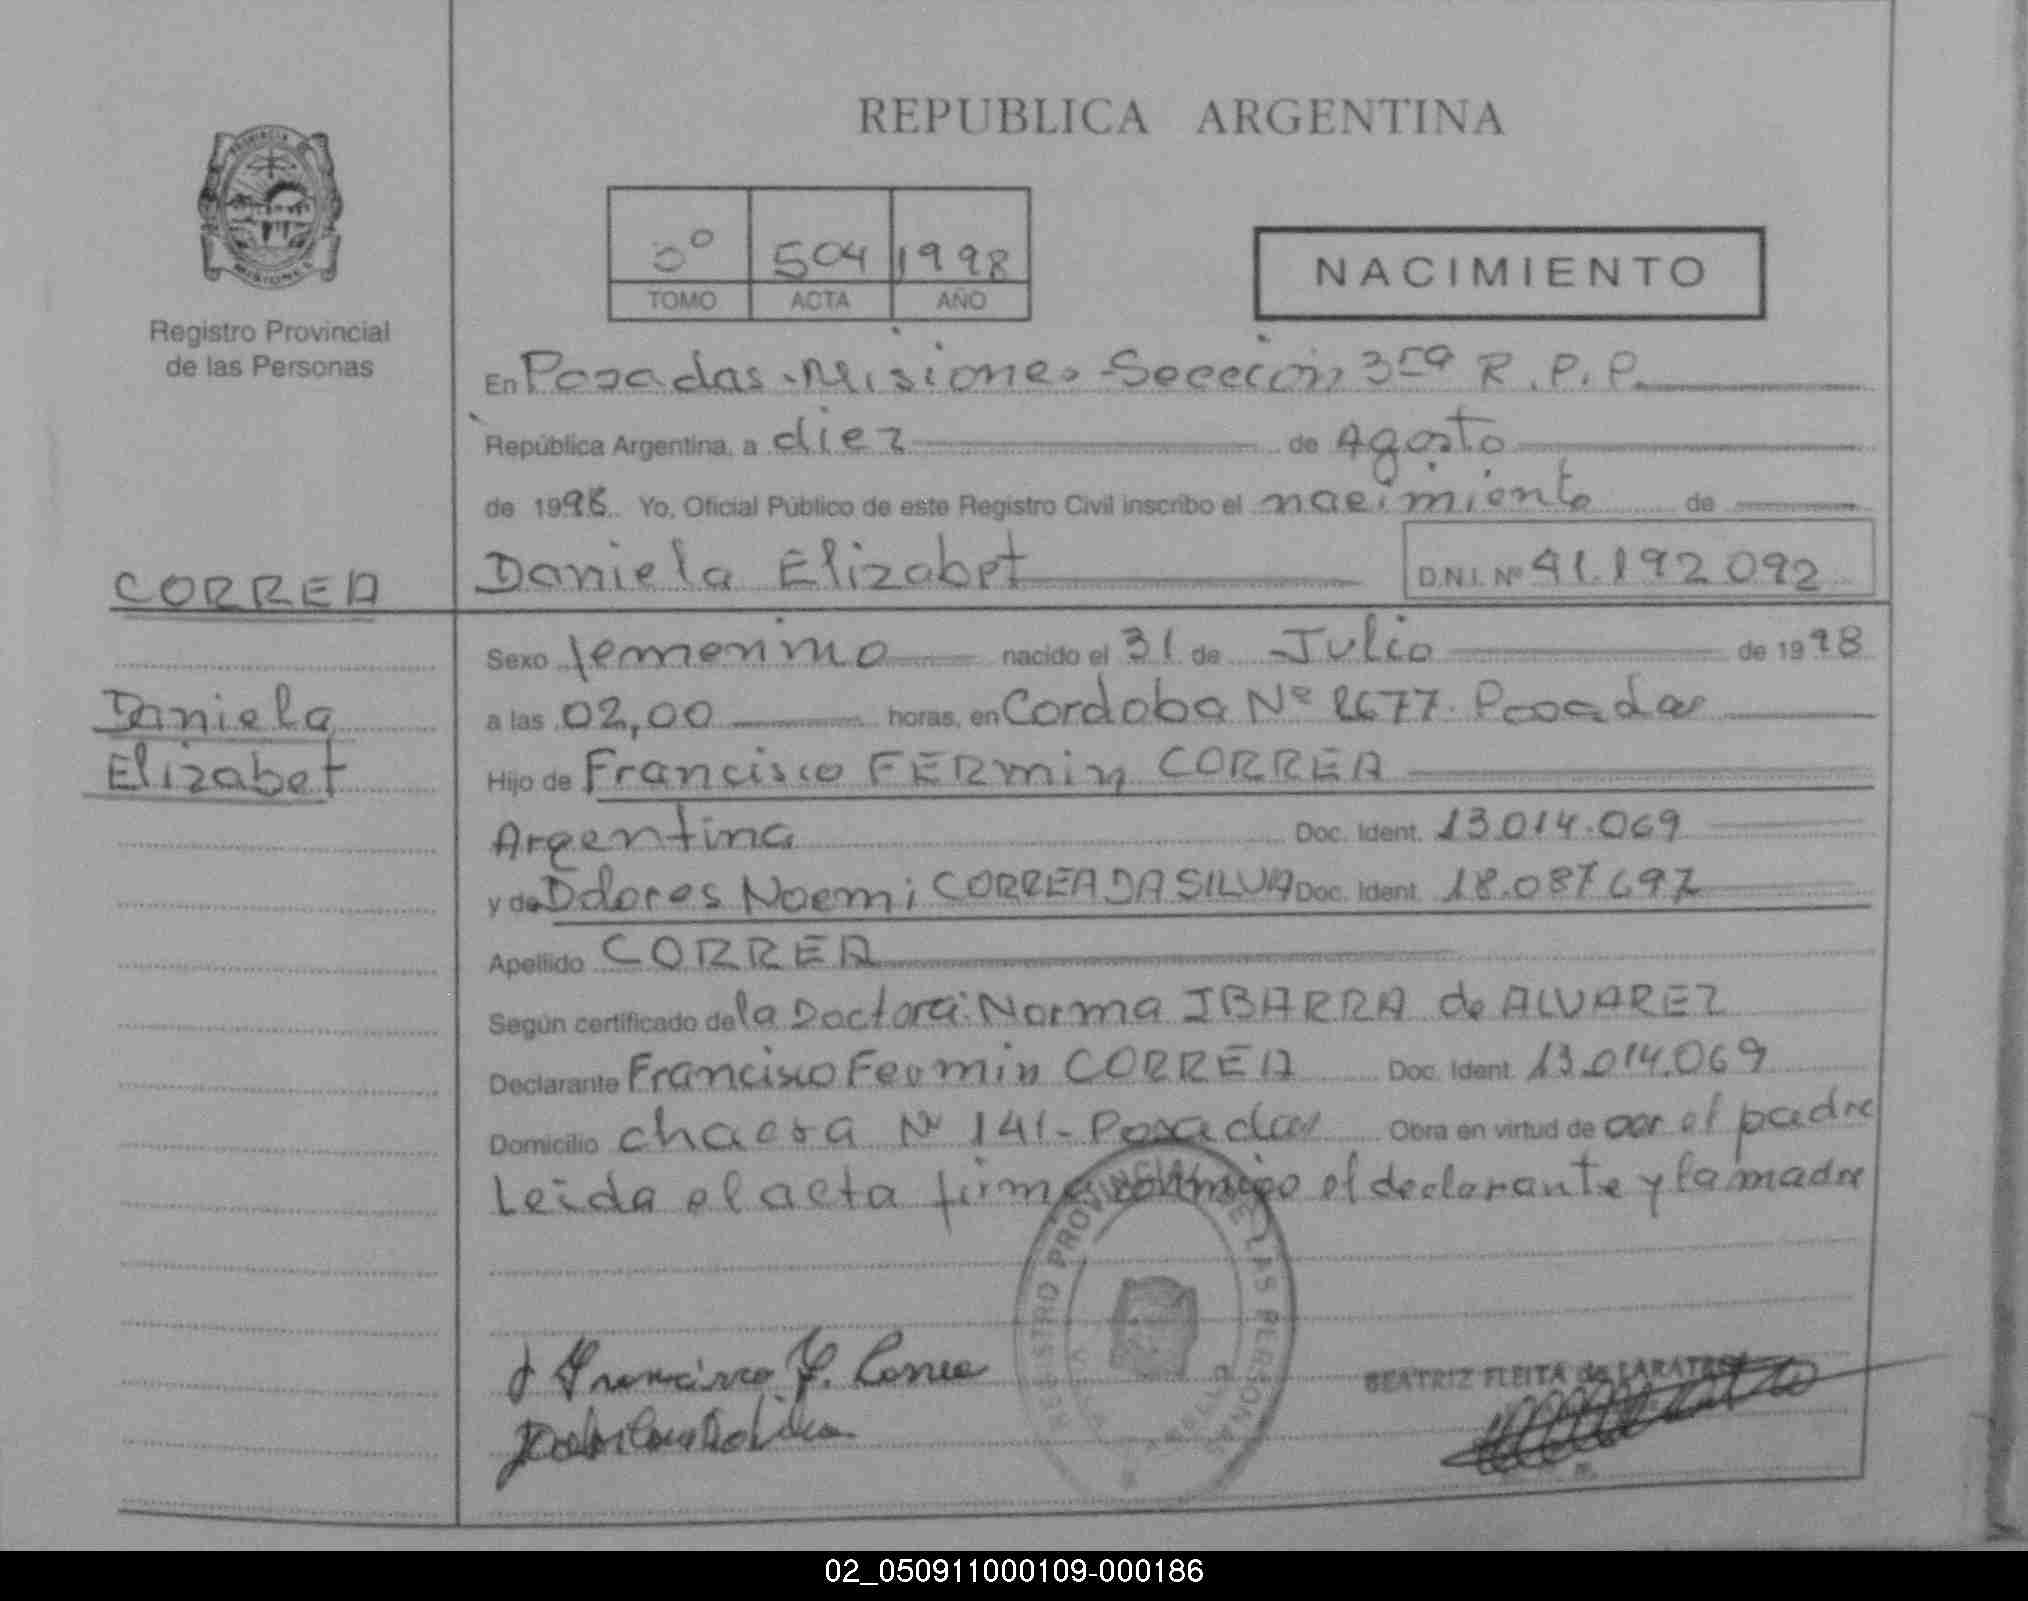 REPUBLICA ARGENTINA
PROVINCIA DE
MISIONES
Registro Provincial
de las Personas
504 1998
TOMO ACTA AÑO
NACIMIENTO
En Posadas - Misiones - Sección 3ra R.P.P.
República Argentina, a diez de Agosto
de 1998. Yo, Oficial Público de este Registro Civil inscribo el nacimiento de
Daniela Elizabet D.N.I. Nº 41.192.092
CORREA
Daniela
Elizabet
Sexo femenino nacido el 31 de Julio de 1998
a las 02,00 horas, en Cordoba Nº 2677. Posadas
Hijo de Francisco FERmin CORREA
Argentina Doc. Ident. 13.014.069
y de Dolores Noemi CORREA DA SILVA Doc. Ident. 18.087.697
Apellido CORREA
Según certificado de la Doctora: Norma IBARRA de ALVAREZ
Declarante Francisco Fermin CORREA Doc. Ident. 13.014.069
Domicilio chacra Nº 141 - Posadas Obra en virtud de ser el padre
Leida el acta firma conmigo el declarante y la madre
REGISTRO PROVINCIAL DE LAS PERSONAS
VILLA CABELLO
Francisco F. Correa
BEATRIZ FLEITA de
02_050911000109-000186